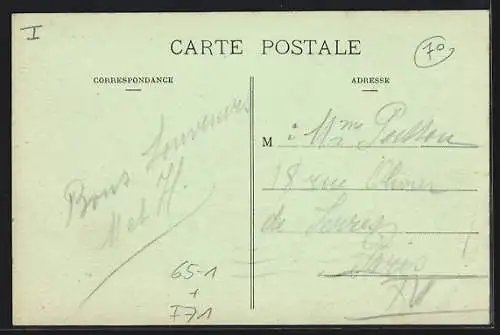 I
CARTE POSTALE
70
CORRESPONDANCE
ADRESSE
Bons Souvenirs
M et H.
M à Mme
18 rue Olivier
de Serres
Paris
XV
65-1
+
F71